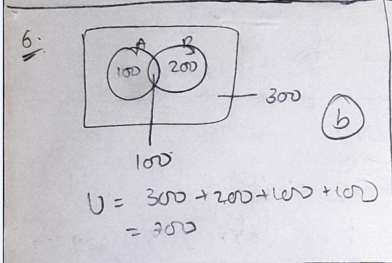 6.
A B
100 200
300
b
100
U = 300 + 200 + 100 + 100
= 700